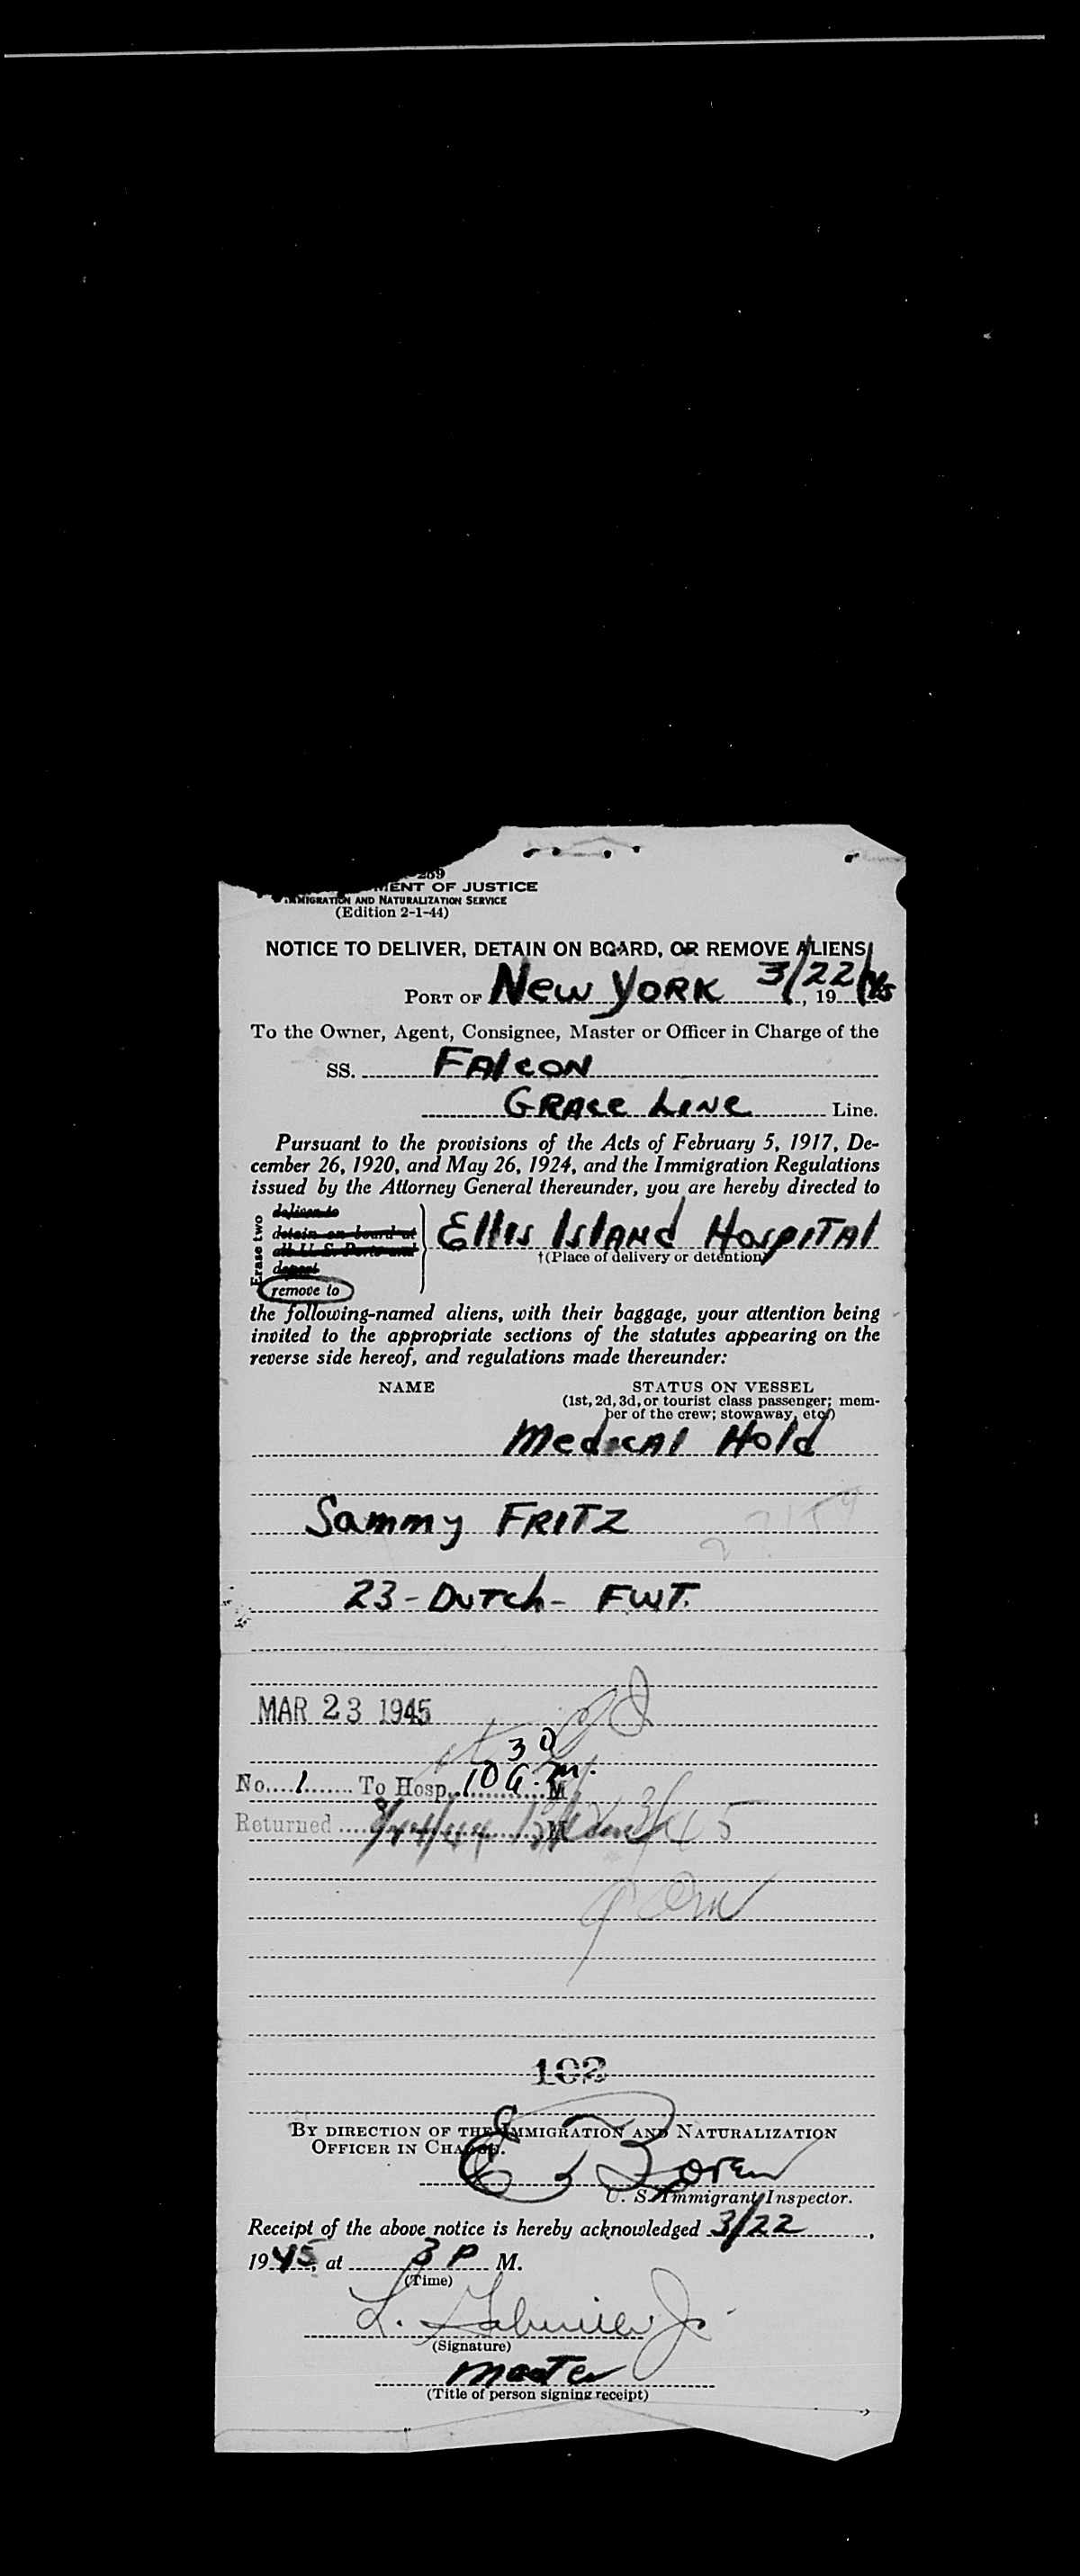 289
MENT OF JUSTICE
IMMIGRATION AND NATURALIZATION SERVICE
(Edition 2-1-44)
NOTICE TO DELIVER, DETAIN ON BOARD, OR REMOVE ALIENS
PORT OF New YORK 3/22, 1945
To the Owner, Agent, Consignee, Master or Officer in Charge of the
SS. FAlcON
GRACE LINE Line.
Pursuant to the provisions of the Acts of February 5, 1917, De-
cember 26, 1920, and May 26, 1924, and the Immigration Regulations
issued by the Attorney General thereunder, you are hereby directed to
Erase two
deliver to
detain on board at
all U. S. Ports and
deport
remove to
Ellis IslANd HospITAl
†(Place of delivery or detention)
the following-named aliens, with their baggage, your attention being
invited to the appropriate sections of the statutes appearing on the
reverse side hereof, and regulations made thereunder:
NAME STATUS ON VESSEL
(1st, 2d, 3d, or tourist class passenger; mem-
ber of the crew; stowaway, etc.)
Medical Hold
Sammy FRITZ
23 - DuTch - FWT.
MAR 23 1945
No. 1 To Hosp. 10 30 a.m. M
Returned M
102
BY DIRECTION OF THE IMMIGRATION AND NATURALIZATION
OFFICER IN CHARGE.
E Boren
U. S. Immigrant Inspector.
Receipt of the above notice is hereby acknowledged 3/22,
1945, at 3 P M.
(Time)
L. Jr.
(Signature)
master
(Title of person signing receipt)